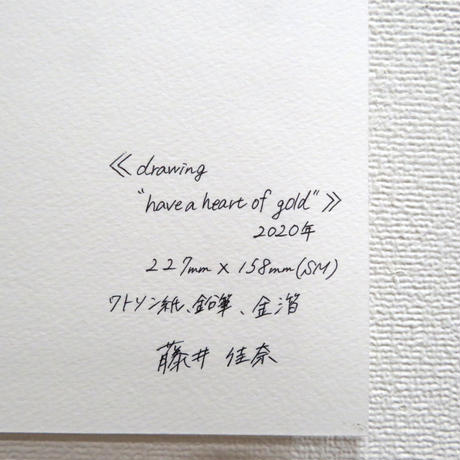 ≪drawing
"have a heart of gold"≫
2020年
227mm×158mm(SM)
ワトソン紙、鉛筆、金箔
藤井 佳奈